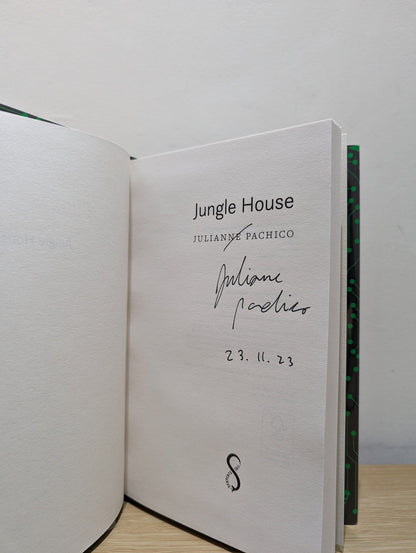 Jungle House
JULIANNE PACHICO
Julianne
Pachico
23.11.23